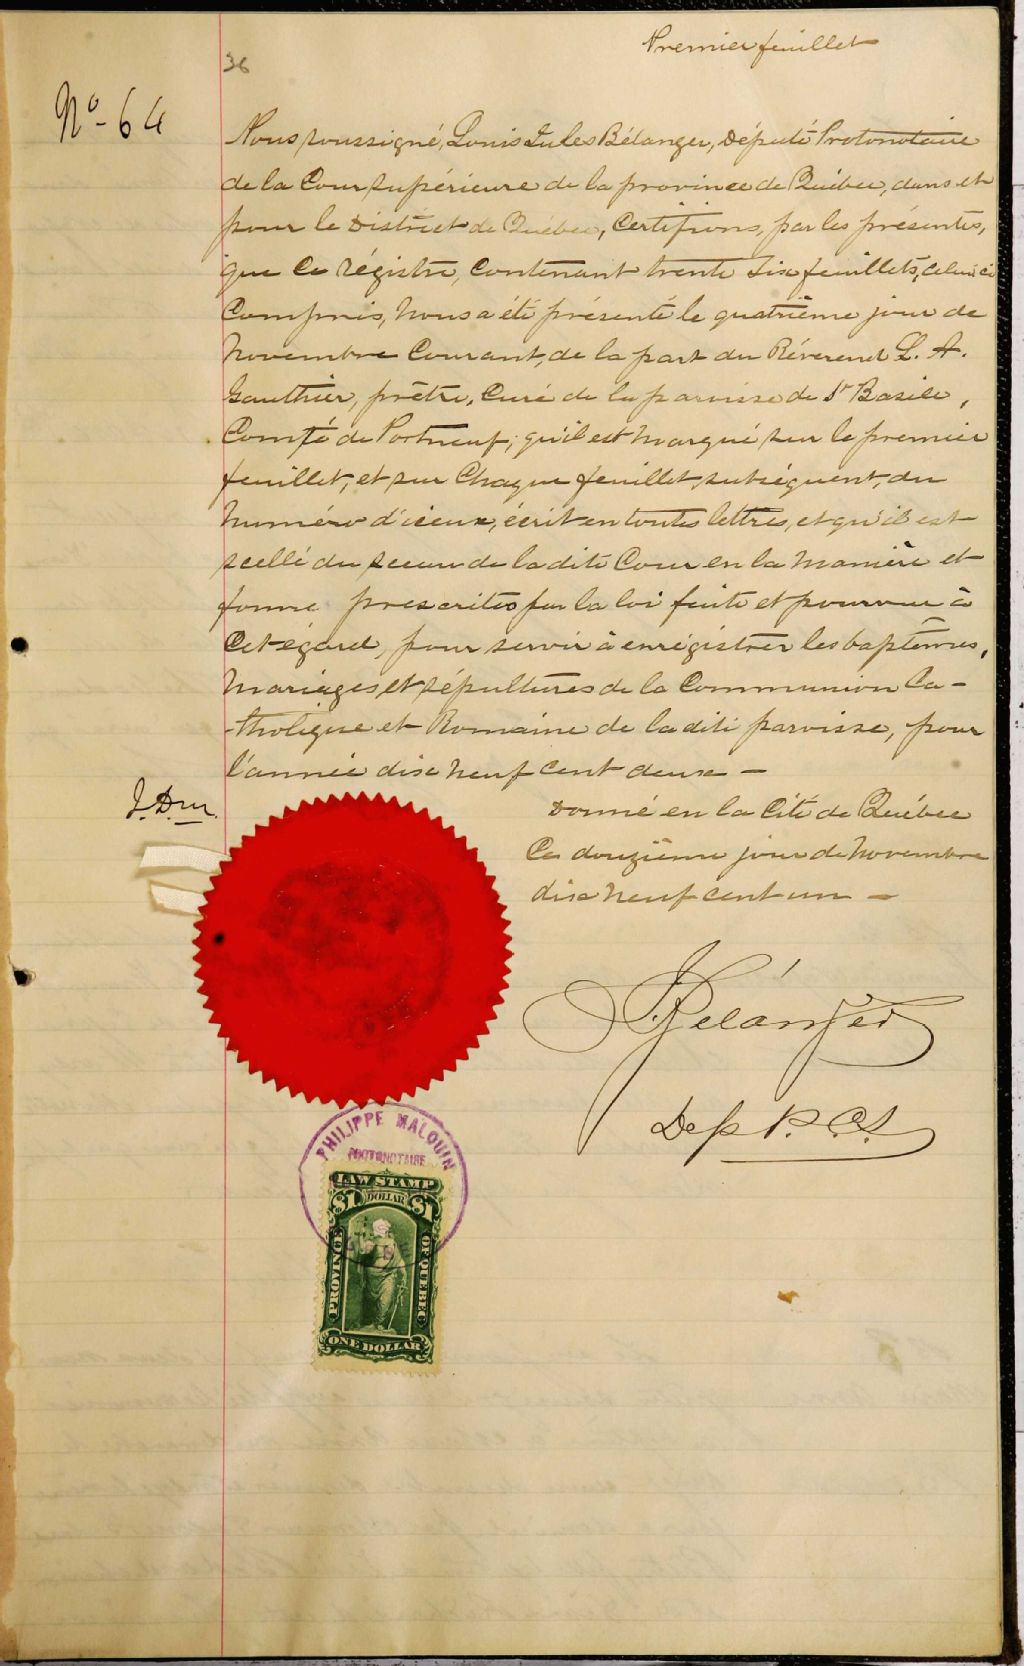 Premier feuillet
36
No - 64
Nous soussigné, Louis Jules Bélanger, Député Protonotaire
de la Cour Supérieure de la province de Québec, dans et
pour le District de Québec, Certifions, par les présentes,
que ce régistre, contenant trente six feuillets, celui ci
Compris, nous a été présenté le quatrième jour de
Novembre courant, de la part du Révérend L. A.
Gauthier, prêtre, Curé de la paroisse de St Basile,
Comté de Portneuf; qu'il est marqué sur le premier
feuillet, et sur chaque feuillet subséquent, du
Numéro d'iceux, écrit en toutes lettres, et qu'il est
scellé du sceau de la dite Cour en la manière et
forme prescrites par la loi faite et pourvue à
cet égard, pour servir à enrégistrer les baptêmes,
Mariages, et sépultures de la Communion Ca-
tholique et Romaine de la dite paroisse, pour
l'année dix neuf cent deux -
Donné en la Cité de Québec
Ce douzième jour de Novembre
dix neuf cent un -
Bélanger
Dep P. C. S
PHILIPPE MALOUIN
PROTONOTAIRE
LAW STAMP
$1 DOLLAR $1
PROVINCE OF QUEBEC
ONE DOLLAR